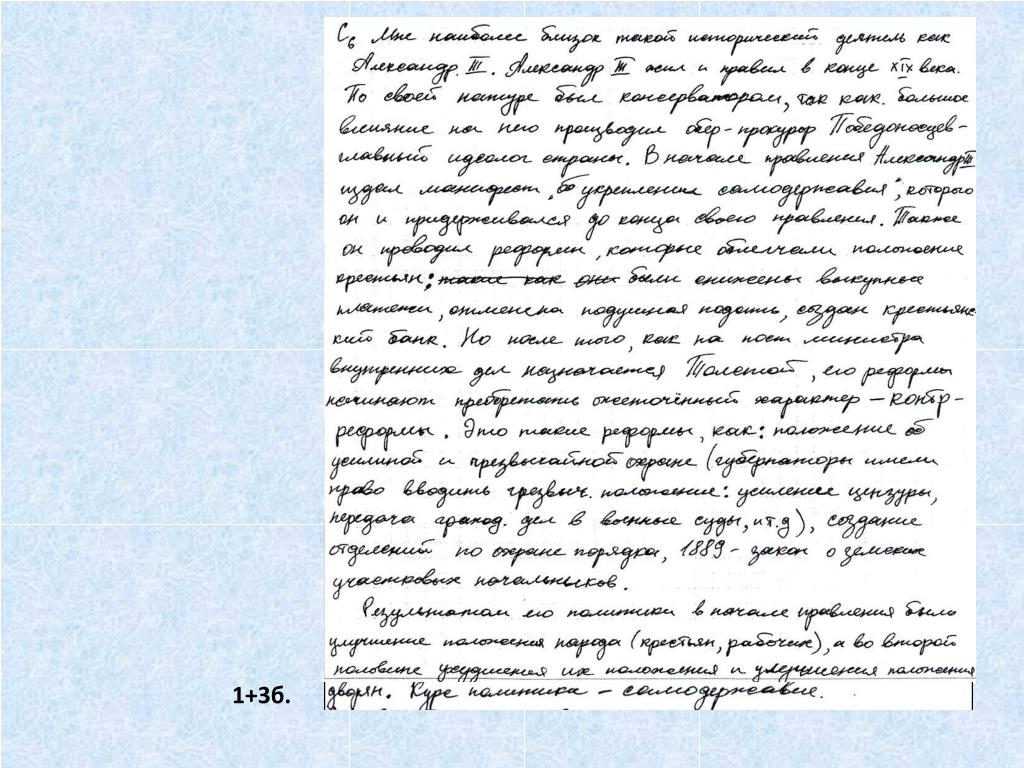 С6 Мне наиболее близок такой исторический деятель как
Александр III. Александр III жил и правил в конце XIX века.
По своей натуре был консерватором, так как большое
влияние на него производил обер-прокурор Победоносцев-
главный идеолог страны. В начале правления Александр III
издал манифест „Об укреплении самодержавия", которого
он и придерживался до конца своего правления. Также
он проводил реформы, которые облегчали положение
крестьян: такие как они были снижены выкупные
платежи, отменена подушная подать, создан крестьянс-
кий банк. Но после того, как на пост министра
внутренних дел назначается Толстой, его реформы
начинают преобретать ожесточённый характер – контр-
реформы. Это такие реформы, как: положение об
усилиной и чрезвычайной охране (губернаторы имели
право вводить чрезвыч. положение: усиление цензуры,
передача гражд. дел в военные суды, и т.д), создание
отделений по охране порядка, 1889 - закон о земских
участковых начальниках.
Результатом его политики в начале правления было
улучшение положения народа (крестьян, рабочих), а во второй
половине ухудшения их положения и улучшения положения
дворян. Курс политика – самодержавие.
1+3б.